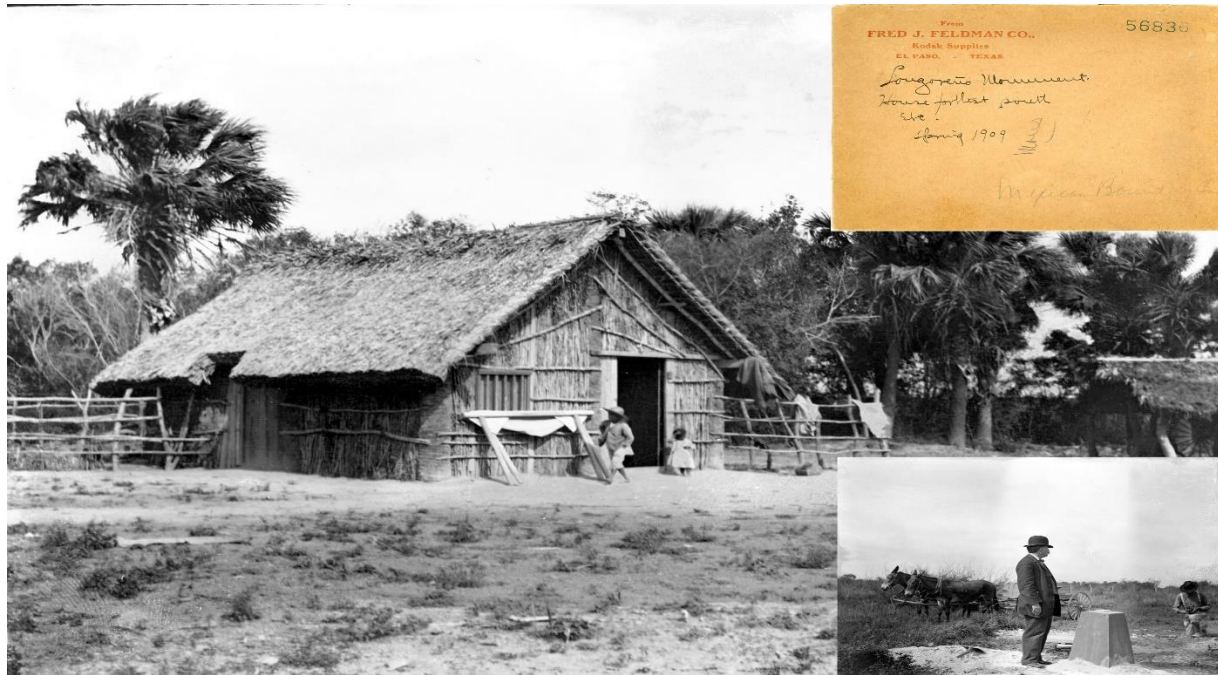 From
FRED J. FELDMAN CO.,
Kodak Supplies
EL PASO, - TEXAS
56836
Longoreño Monument.
House farthest south
etc.
Spring 1909
Mexican Bound